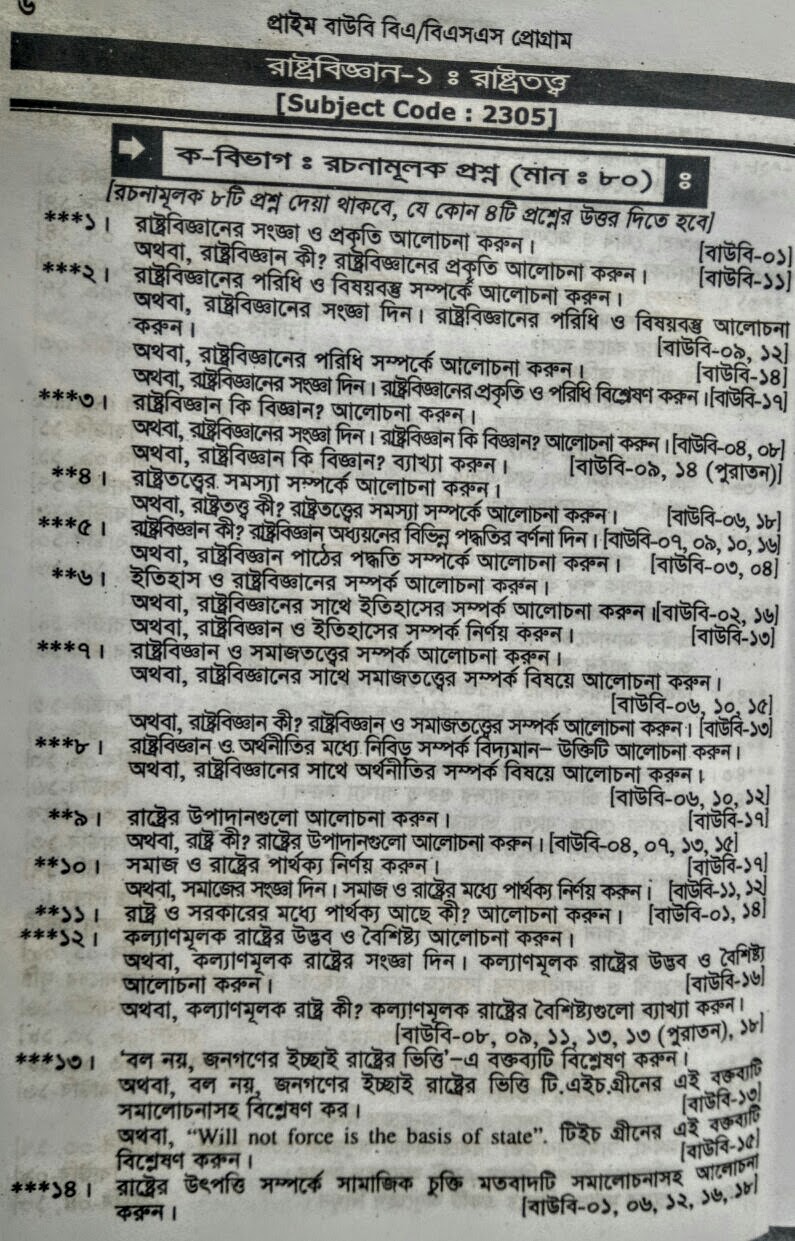 ৬
প্রাইম বাউবি বিএ/বিএসএস প্রোগ্রাম
রাষ্ট্রবিজ্ঞান-১ ঃ রাষ্ট্রতত্ত্ব
[Subject Code : 2305]
ক-বিভাগ ঃ রচনামূলক প্রশ্ন (মান ঃ ৮০) ঃ
[রচনামূলক ৮টি প্রশ্ন দেয়া থাকবে, যে কোন ৪টি প্রশ্নের উত্তর দিতে হবে]
***১। রাষ্ট্রবিজ্ঞানের সংজ্ঞা ও প্রকৃতি আলোচনা করুন। [বাউবি-০১]
অথবা, রাষ্ট্রবিজ্ঞান কী? রাষ্ট্রবিজ্ঞানের প্রকৃতি আলোচনা করুন। [বাউবি-১১]
***২। রাষ্ট্রবিজ্ঞানের পরিধি ও বিষয়বস্তু সম্পর্কে আলোচনা করুন।
অথবা, রাষ্ট্রবিজ্ঞানের সংজ্ঞা দিন। রাষ্ট্রবিজ্ঞানের পরিধি ও বিষয়বস্তু আলোচনা
করুন। [বাউবি-০৯, ১২]
অথবা, রাষ্ট্রবিজ্ঞানের পরিধি সম্পর্কে আলোচনা করুন। [বাউবি-১৪]
অথবা, রাষ্ট্রবিজ্ঞানের সংজ্ঞা দিন। রাষ্ট্রবিজ্ঞানের প্রকৃতি ও পরিধি বিশ্লেষণ করুন।[বাউবি-১৭]
***৩। রাষ্ট্রবিজ্ঞান কি বিজ্ঞান? আলোচনা করুন।
অথবা, রাষ্ট্রবিজ্ঞানের সংজ্ঞা দিন। রাষ্ট্রবিজ্ঞান কি বিজ্ঞান? আলোচনা করুন।[বাউবি-০৪, ০৮]
অথবা, রাষ্ট্রবিজ্ঞান কি বিজ্ঞান? ব্যাখ্যা করুন। [বাউবি-০৯, ১৪ (পুরাতন)]
**৪। রাষ্ট্রতত্ত্বের সমস্যা সম্পর্কে আলোচনা করুন।
অথবা, রাষ্ট্রতত্ত্ব কী? রাষ্ট্রতত্ত্বের সমস্যা সম্পর্কে আলোচনা করুন। [বাউবি-০৬, ১৮]
***৫। রাষ্ট্রবিজ্ঞান কী? রাষ্ট্রবিজ্ঞান অধ্যয়নের বিভিন্ন পদ্ধতির বর্ণনা দিন। [বাউবি-০৭, ০৯, ১০, ১৬]
অথবা, রাষ্ট্রবিজ্ঞান পাঠের পদ্ধতি সম্পর্কে আলোচনা করুন। [বাউবি-০৩, ০৪]
**৬। ইতিহাস ও রাষ্ট্রবিজ্ঞানের সম্পর্ক আলোচনা করুন।
অথবা, রাষ্ট্রবিজ্ঞানের সাথে ইতিহাসের সম্পর্ক আলোচনা করুন।[বাউবি-০২, ১৬]
অথবা, রাষ্ট্রবিজ্ঞান ও ইতিহাসের সম্পর্ক নির্ণয় করুন। [বাউবি-১৩]
***৭। রাষ্ট্রবিজ্ঞান ও সমাজতত্ত্বের সম্পর্ক আলোচনা করুন।
অথবা, রাষ্ট্রবিজ্ঞানের সাথে সমাজতত্ত্বের সম্পর্ক বিষয়ে আলোচনা করুন।
[বাউবি-০৬, ১০, ১৫]
অথবা, রাষ্ট্রবিজ্ঞান কী? রাষ্ট্রবিজ্ঞান ও সমাজতত্ত্বের সম্পর্ক আলোচনা করুন। [বাউবি-১৩]
***৮। রাষ্ট্রবিজ্ঞান ও অর্থনীতির মধ্যে নিবিড় সম্পর্ক বিদ্যমান– উক্তিটি আলোচনা করুন।
অথবা, রাষ্ট্রবিজ্ঞানের সাথে অর্থনীতির সম্পর্ক বিষয়ে আলোচনা করুন।
[বাউবি-০৬, ১০, ১২]
**৯। রাষ্ট্রের উপাদানগুলো আলোচনা করুন। [বাউবি-১৭]
অথবা, রাষ্ট্র কী? রাষ্ট্রের উপাদানগুলো আলোচনা করুন। [বাউবি-০৪, ০৭, ১৩, ১৫]
**১০। সমাজ ও রাষ্ট্রের পার্থক্য নির্ণয় করুন। [বাউবি-১৭]
অথবা, সমাজের সংজ্ঞা দিন। সমাজ ও রাষ্ট্রের মধ্যে পার্থক্য নির্ণয় করুন। [বাউবি-১১, ১২]
**১১। রাষ্ট্র ও সরকারের মধ্যে পার্থক্য আছে কী? আলোচনা করুন। [বাউবি-০১, ১৪]
***১২। কল্যাণমূলক রাষ্ট্রের উদ্ভব ও বৈশিষ্ট্য আলোচনা করুন।
অথবা, কল্যাণমূলক রাষ্ট্রের সংজ্ঞা দিন। কল্যাণমূলক রাষ্ট্রের উদ্ভব ও বৈশিষ্ট্য
আলোচনা করুন। [বাউবি-১৬]
অথবা, কল্যাণমূলক রাষ্ট্র কী? কল্যাণমূলক রাষ্ট্রের বৈশিষ্ট্যগুলো ব্যাখ্যা করুন।
[বাউবি-০৮, ০৯, ১১, ১৩, ১৩ (পুরাতন), ১৮]
***১৩। ‘বল নয়, জনগণের ইচ্ছাই রাষ্ট্রের ভিত্তি’–এ বক্তব্যটি বিশ্লেষণ করুন।
অথবা, বল নয়, জনগণের ইচ্ছাই রাষ্ট্রের ভিত্তি টি.এইচ.গ্রীনের এই বক্তব্যটি
সমালোচনাসহ বিশ্লেষণ কর। [বাউবি-১৩]
অথবা, “Will not force is the basis of state”. টিইচ গ্রীনের এই বক্তব্যটি
বিশ্লেষণ করুন। [বাউবি-১৫]
***১৪। রাষ্ট্রের উৎপত্তি সম্পর্কে সামাজিক চুক্তি মতবাদটি সমালোচনাসহ আলোচনা
করুন। [বাউবি-০১, ০৬, ১২, ১৬, ১৮]